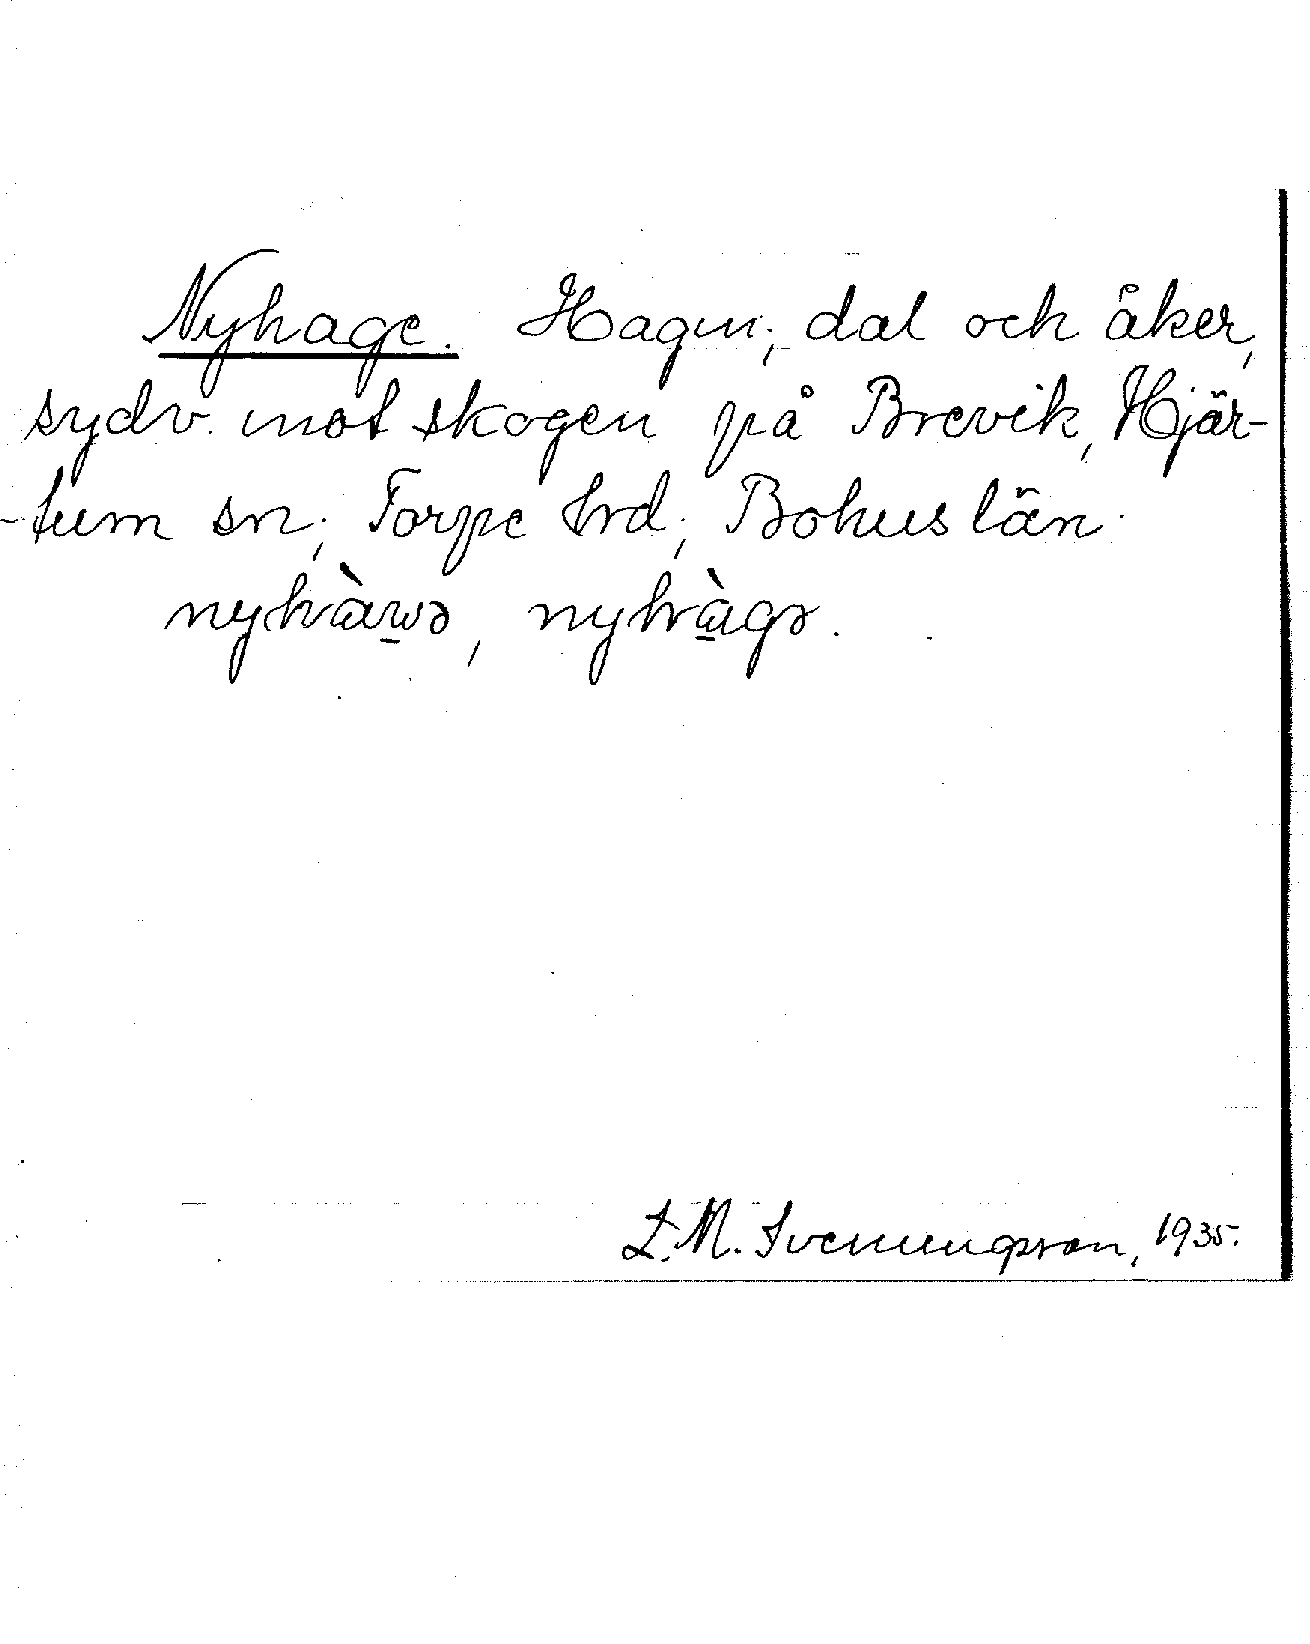 Nyhage. Hagm; dal och åker,
sydv. mot skogen på Brevik, Hjär-
tum sn; Torpe hrd; Bohus län.
nyhàwə, nyhàgə.
L. M. Svenungsson, 1935.